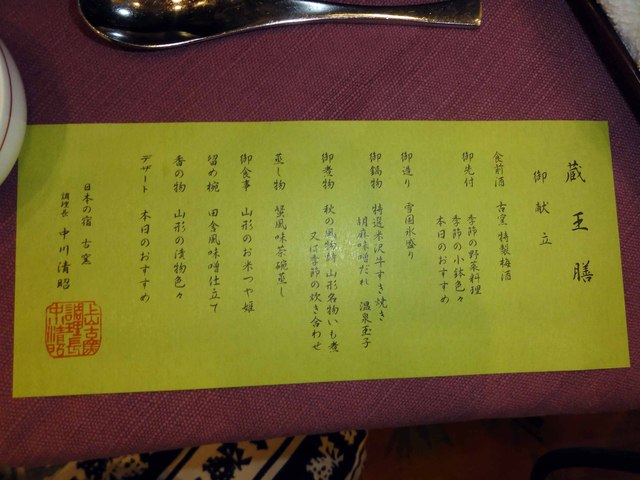 蔵王膳
御献立
食前酒 古窯 特製梅酒
御先付 季節の野菜料理
季節の小鉢色々
本日のおすすめ
御造り 雪国氷盛り
御鍋物 特選米沢牛すき焼き
胡麻味噌だれ 温泉玉子
御煮物 秋の風物詩山形名物いも煮
又は季節の炊き合わせ
蒸し物 蟹風味茶碗蒸し
御食事 山形のお米つや姫
留め椀 田舎風味噌仕立て
香の物 山形の漬物色々
デザート 本日のおすすめ
日本の宿 古窯
調理長 中川清昭
上山古窯
調理長
中川清昭